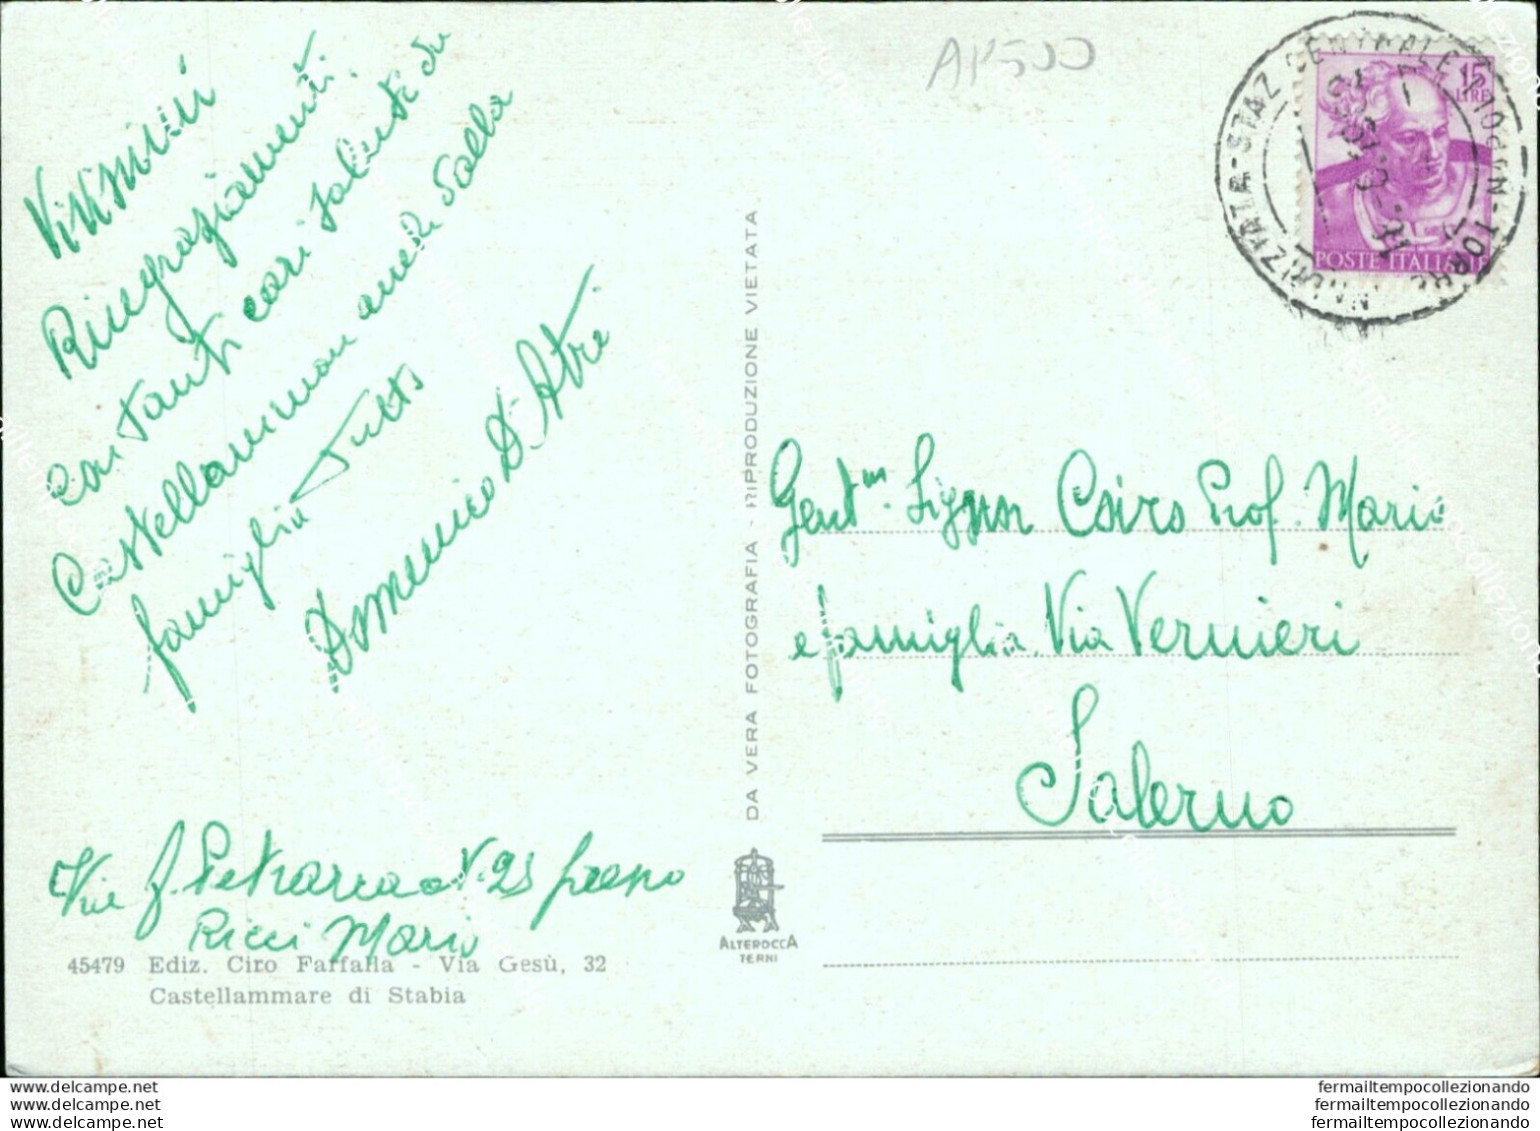 AP500
Vivissimi
Ringraziamenti
con tanti cari saluti da
Castellammare anche dalla
famiglia tutta
Domenico D'Atri
Via F. Petrarca N. 25 presso
Ricci Mario
45479 Ediz. Ciro Farfalla - Via Gesù, 32
Castellammare di Stabia
DA VERA FOTOGRAFIA - RIPRODUZIONE VIETATA
ALTEROCCA
TERNI
15
LIRE
POSTE ITALIANE
Prof. Mario
e famiglia Via Vernieri
Salerno
delcampe.net
delcampe.net
delcampe.net
fermailtempocollezionando
fermailtempocollezionando
fermailtempocollezionando